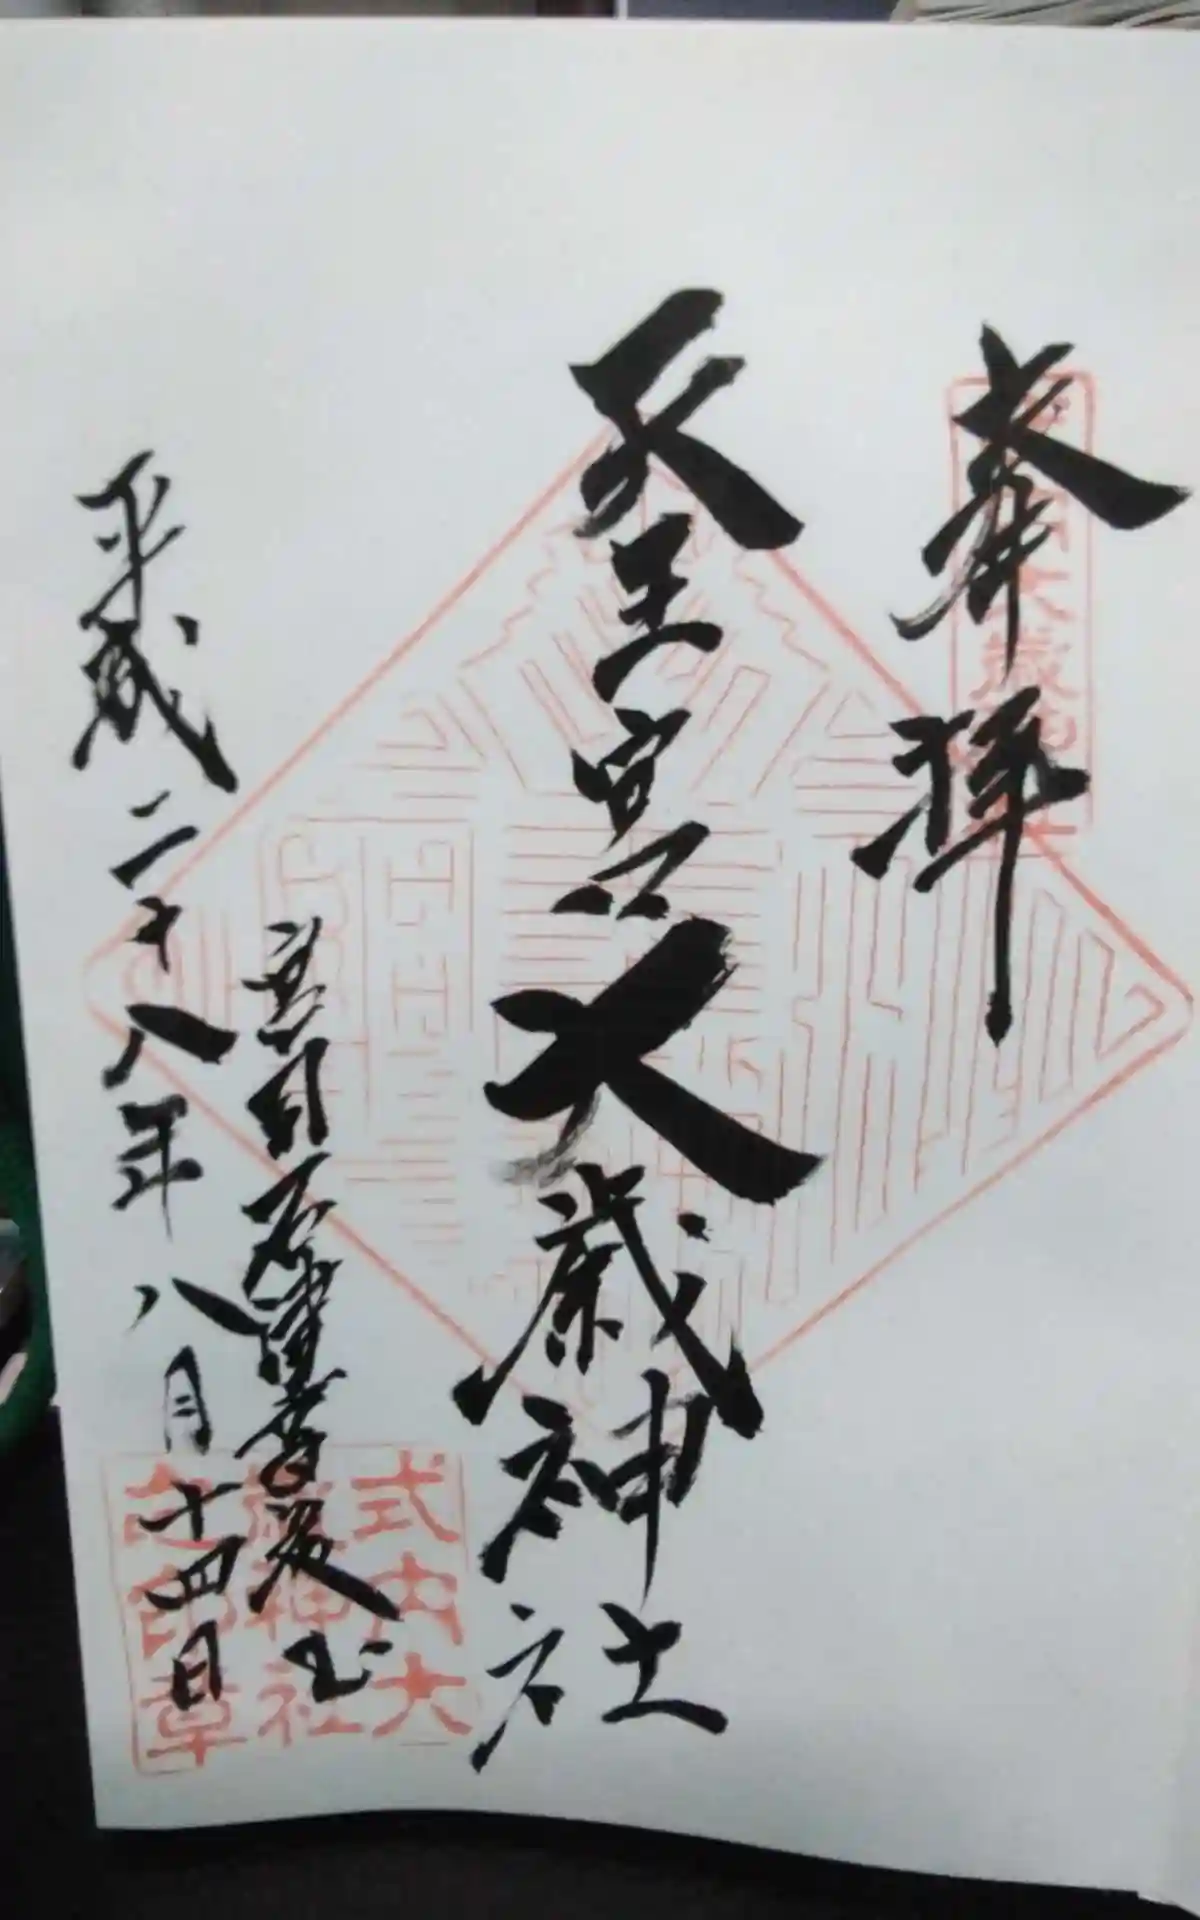 奉拝
天王宮大歳神社
宮司
平成二十八年八月十四日
式内大
歳神社
之印章